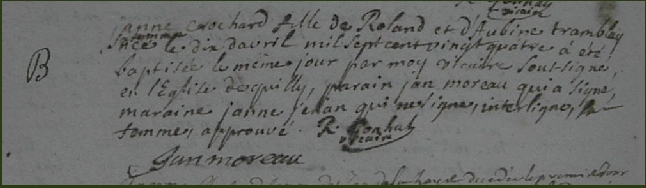 janne crochard fille de Roland et d'Aubine tramblay
sa femme
née le dix davril mil sept cent vingt quatre a été
B
baptisée le même jour par moy vicaire soussigné,
en l'Eglise de quilly, parain jan moreau qui a signé,
maraine janne jehan qui ne signe, interligne, sa
femme, approuvé. R. Gonhal
vicaire
Jan moreau